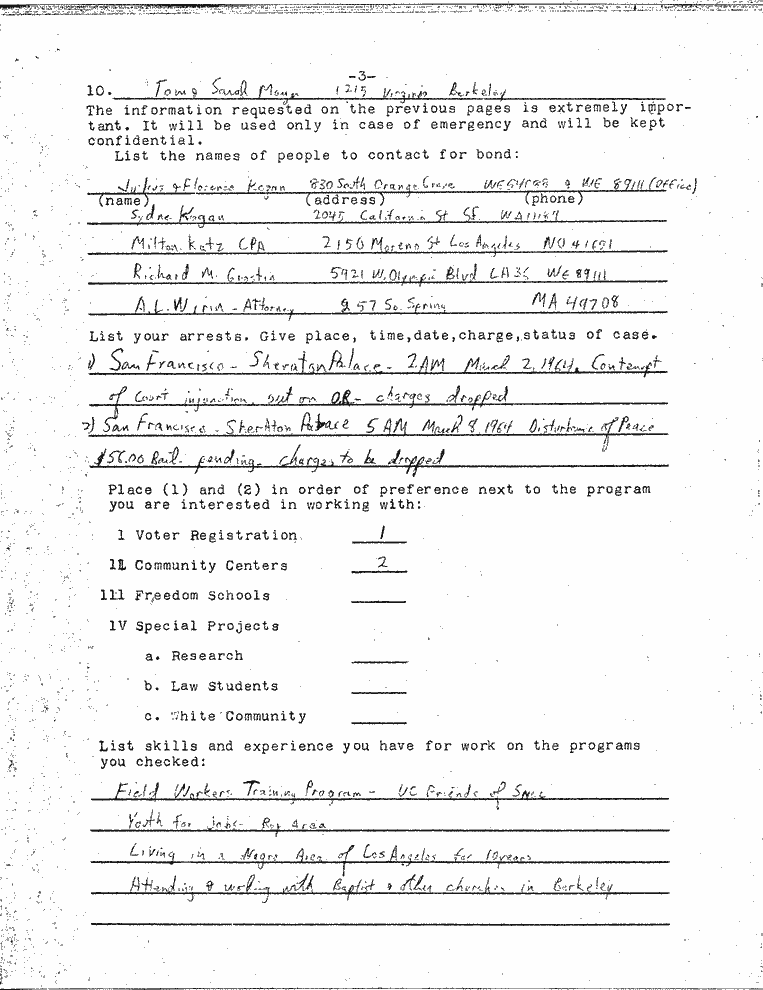 -3-
10. Tom & Sarah 1215 Virginia Berkeley
The information requested on the previous pages is extremely impor-
tant. It will be used only in case of emergency and will be kept
confidential.
List the names of people to contact for bond:
Julius & Florence Kogan 830 South Orange Grove & WE 89111 (Office)
(name) (address) (phone)
Kogan 2045 California St SF.
Milton Katz CPA 2150 Moreno St Los Angeles NO 41691
Richard M. 5921 W. Olympic Blvd LA 36 WE 89111
A.L. Wirin - Attorney 257 So. Spring MA 49708
List your arrests. Give place, time,date,charge,status of case.
1) San Francisco - Sheraton Palace - 2AM March 2, 1964. Contempt
of Court injunction, out on O.R. - charges dropped
2) San Francisco - SherAton Palace 5 AM March 8, 1964 Disturbance of Peace
$56.00 Bail. pending. charges to be dropped
Place (1) and (2) in order of preference next to the program
you are interested in working with:
1 Voter Registration 1
11 Community Centers 2
111 Freedom Schools
1V Special Projects
a. Research
b. Law Students
c. White Community
List skills and experience you have for work on the programs
you checked:
Field Workers Training Program - UC Friends of SNCC
Youth For Jobs - Bay Area
Living in a Negro Area of Los Angeles for 10 years
Attending & working with Baptist & other churches in Berkeley